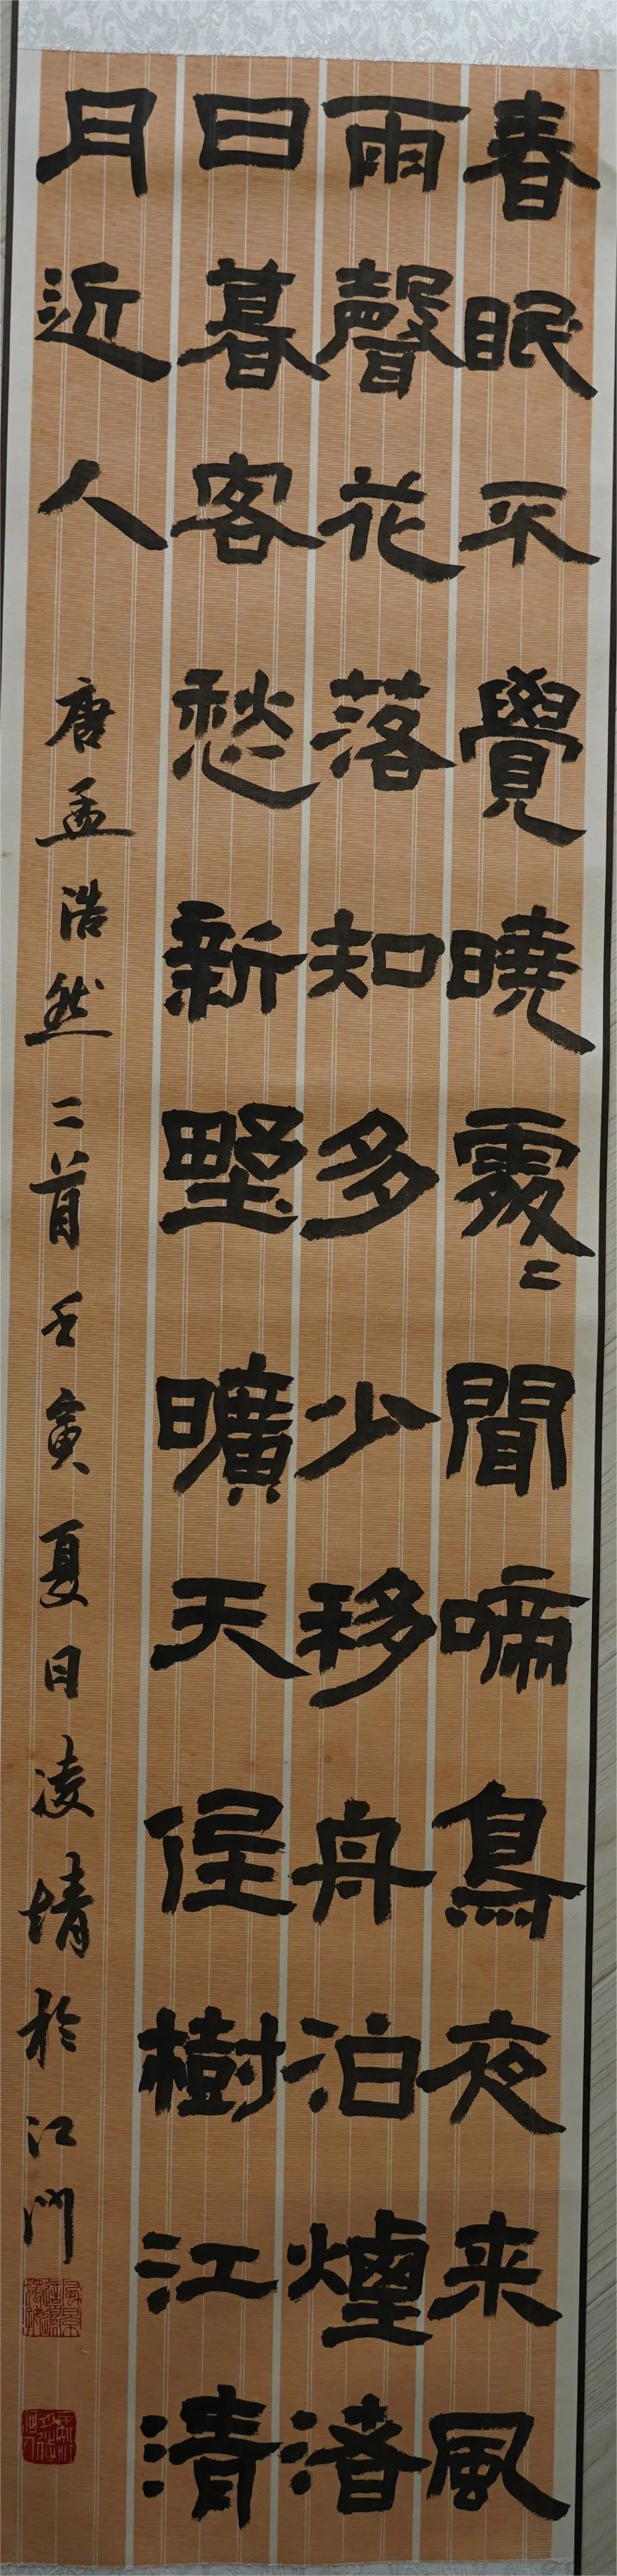 春眠不覺曉處〻聞啼鳥夜来風
雨聲花落知多少移舟泊煙渚
日暮客愁新野曠天低樹江清
月近人 唐孟浩然二首壬寅夏日凌靖於江門